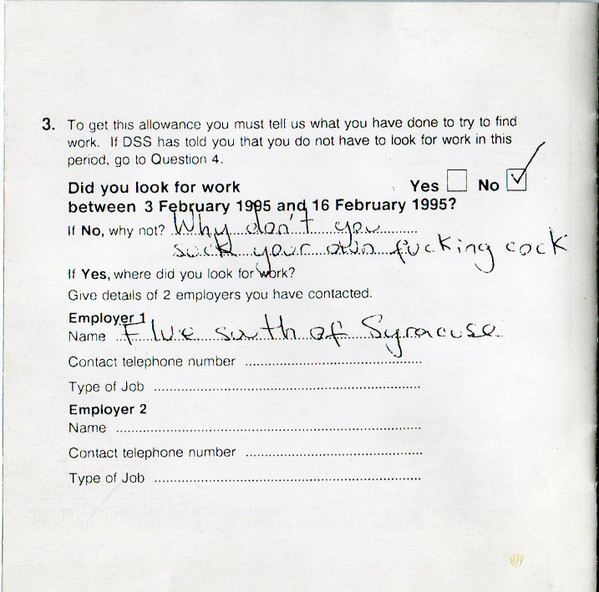 3. To get this allowance you must tell us what you have done to try to find
work. If DSS has told you that you do not have to look for work in this
period, go to Question 4.
Did you look for work Yes No
between 3 February 1995 and 16 February 1995?
If No, why not? Why don't you
suck your own fucking cock
If Yes, where did you look for work?
Give details of 2 employers you have contacted.
Employer 1
Name Five south of Syracuse
Contact telephone number
Type of Job
Employer 2
Name
Contact telephone number
Type of Job